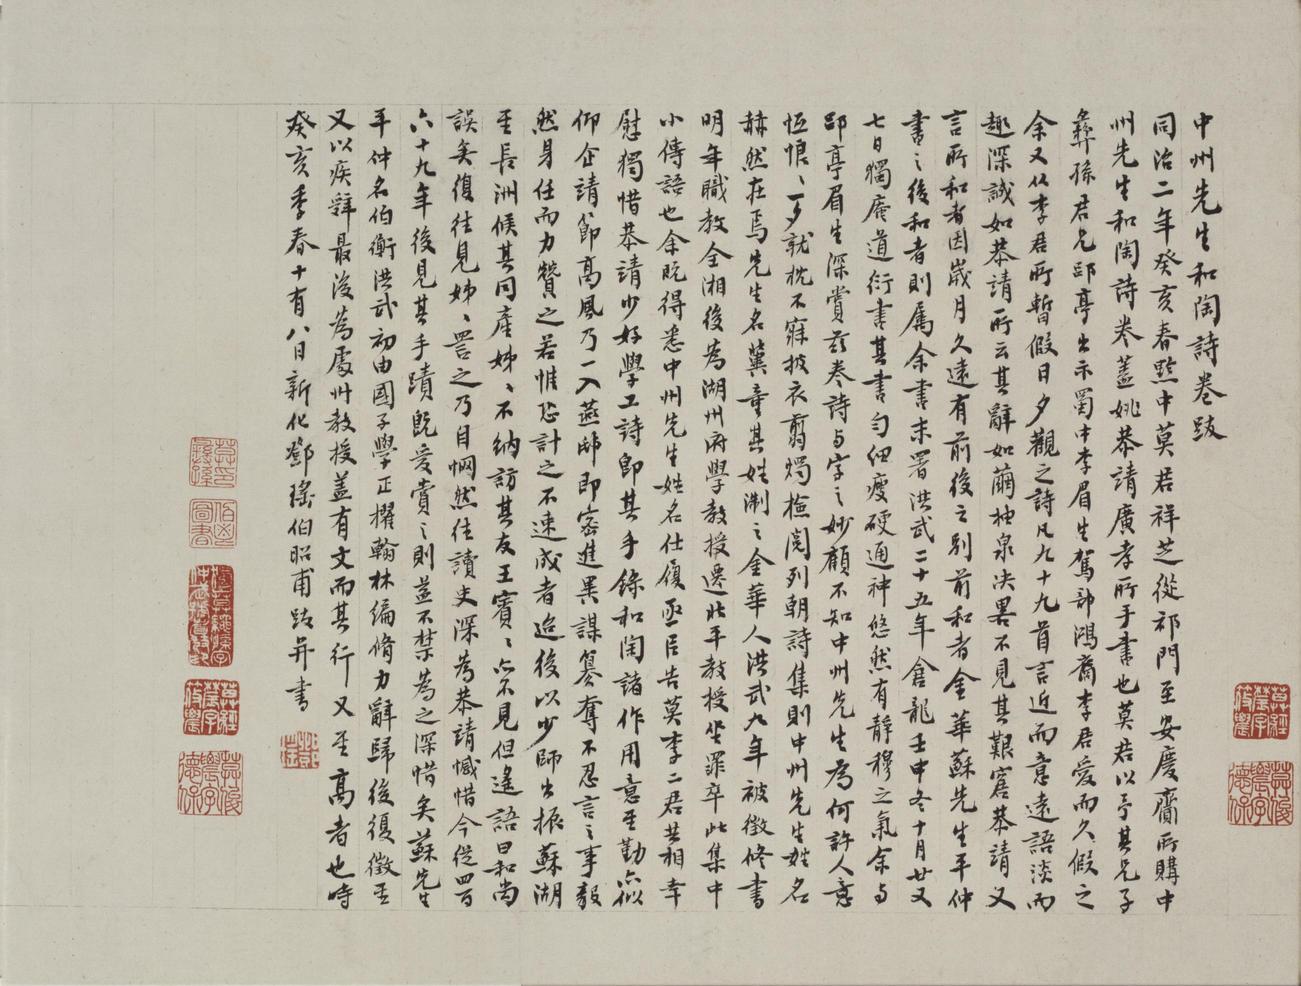 中州先生和陶詩卷跋
同治二年癸亥春黟中莫君祥芝從祁門至安慶齎所購中
州先生和陶詩卷蓋姚恭靖廣孝所手書也莫君以予其兄子
彝孫君兄郘亭出示蜀中李眉生駕部鴻裔李君愛而久假之
余又從李君所暫假日夕觀之詩凡九十九首言近而意遠語淡而
趣深誠如恭靖所云其辭如繭抽泉決畧不見其艱窘恭靖又
言所和者因歲月久遠有前後之別前和者金華蘇先生平仲
書之後和者則屬余書末署洪武二十五年倉龍壬申冬十月廿又
七日獨庵道衍書其書勻細瘦硬通神悠然有靜穆之氣余與
郘亭眉生深賞茲卷詩與字之妙顧不知中州先生為何許人意
恆悢悢一夕就枕不寐披衣翦燭撿閱列朝詩集則中州先生姓名
赫然在焉先生名冀童其姓淛之金華人洪武九年被徵修書
明年職教全湘後為湖州府學教授遷北平教授坐罪卒此集中
小傳語也余既得悉中州先生姓名仕履亟以告莫李二君共相幸
慰獨惜恭靖少好學工詩即其手錄和陶諸作用意至勤亦似
仰企靖節高風乃一入燕邸即密進異謀篡奪不忍言之事毅
然身任而力贊之若惟恐計之不速成者迨後以少師出振蘇湖
至長洲候其同產姊姊不納訪其友王賓賓亦不見但遙語曰和尚
誤矣復往見姊姊詈之乃自惘然往讀史深為恭靖憾惜今從四百
六十九年後見其手蹟既愛賞之則益不禁為之深惜矣蘇先生
平仲名伯衡洪武初由國子學正擢翰林編脩力辭歸後復徵至
又以疾辭最後為處州教授蓋有文而其行又至高者也時
癸亥季春十有八日新化鄧瑤伯昭甫跋并書